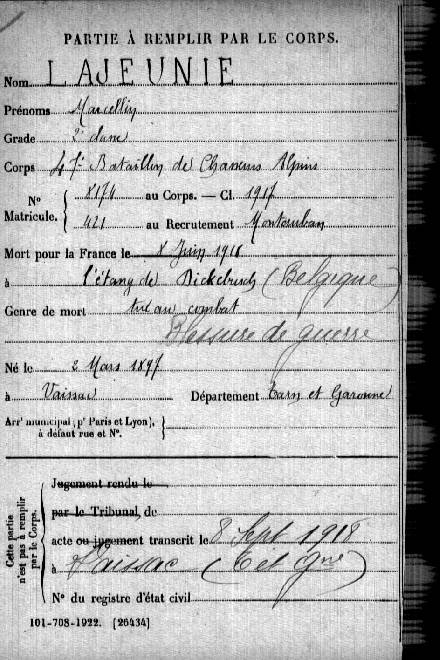 PARTIE À REMPLIR PAR LE CORPS.
Nom LAJEUNIE
Prénoms Marcellin
Grade 2e classe
Corps 47e Bataillon de Chasseurs Alpins
N° Matricule. { 8174 au Corps. — Cl. 1917
421 au Recrutement Montauban
Mort pour la France le 8 Juin 1918
à l'étang de Dickebusch (Belgique)
Genre de mort tué au combat
Blessure de guerre
Né le 2 Mars 1897
à Vaissac Département Tarn et Garonne
Arrt municipal (pr Paris et Lyon), à défaut rue et N°. }
Cette partie n'est pas à remplir par le Corps.
Jugement rendu le
par le Tribunal, de
acte ou jugement transcrit le 8 Sept 1918
à Vaissac (T et Gne)
N° du registre d'état civil
101-708-1922. [26434]